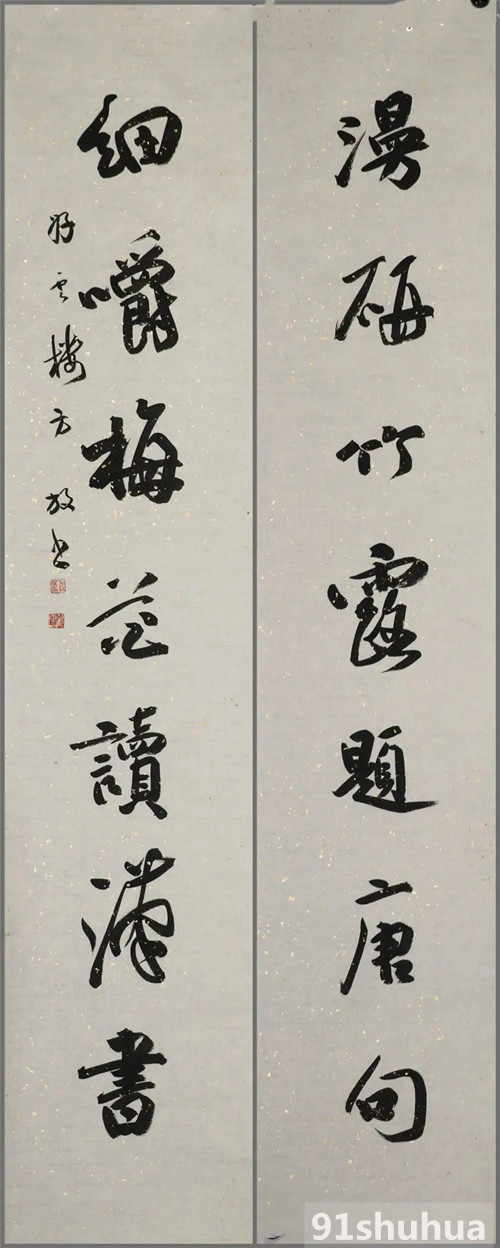 漫研竹露題唐句
細嚼梅花讀漢書
好雲樓方放書
91shuhua